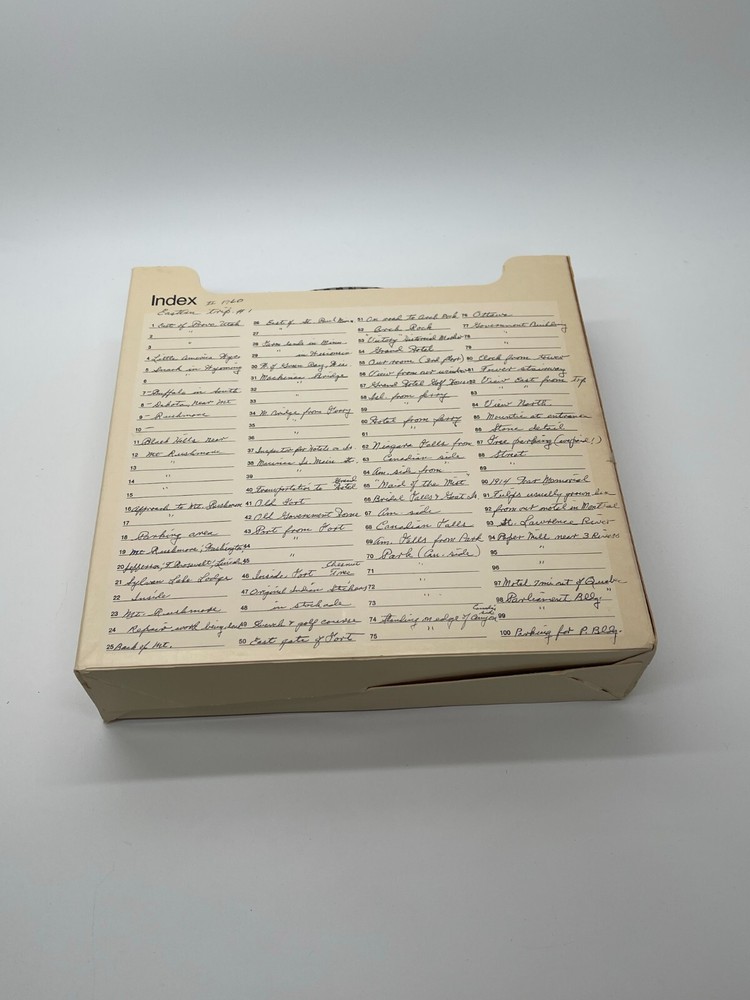 Index
Eastern Trip #1
1 East of Utah
2 "
3 "
4 Little America Wyo
5 Lunch in Wyoming
6 "
7 Buffalo in South
8 Dakota near Mt
9 Rushmore
10
11 Black Hills near
12 Mt Rushmore
13 "
14 "
15 "
16 Approach to Mt Rushmore
17 "
18 Parking area
19 Mt. Rushmore, Washington
20 Jefferson, T Roosevelt, Lincoln
21 Sylvan Lake Lodge
22 Inside
23 Mt. Rushmore
24 Repair work being
25 Back of Mt.
26 East of St. Paul Minn.
27 "
28 Farm lands in Minn
29 " in Wisconsin
30 N. of Green Bay, Wis.
31 Mackinac Bridge
32 "
33 "
34 M. Bridge from Ferry
35 "
36 "
37
38 Mackinac Is. Main St.
39 "
40 Transportation to Grand Hotel
41 Old Fort
42 Old Government Dome
43 Port from Fort
44
45 "
46 Inside Fort Chestnut Tree
47 Original Indian
48 in stockade
49 Church & golf course
50 East gate of Fort
51 On road to Arch Rock
52 Arch Rock
53 "Victory"
54 Grand Hotel
55 Our room (3rd floor)
56 View from our window
57 Grand Hotel Golf
58 from ferry
59
60 Hotel from ferry
61 "
62 Niagara Falls from
63 Canadian side
64 Am. side from "
65 "Maid of the Mist"
66 Bridal Falls & Goat Is.
67 Am side
68 Canadian Falls
69 Am. Falls from Park
70 Park (Can. side)
71 "
72 "
73
74 Standing on edge of Canyon Canadian side
75 "
76 Ottawa
77 Government Building
78 "
79 "
80 Clock from Tower
81 Tower stairway
82 View East from Top
83 " "
84 View North
85 Mountie at entrance
86 Stone detail
87 Free parking
88 Street
89 "
90 1914 War Memorial
91
92 from our motel in Montreal
93 St. Lawrence River
94 Paper Mill near 3 Rivers
95 "
96 "
97 Motel 7 mi out of Quebec
98 Parliament Bldg.
99 "
100 Parking for P. Bldg.